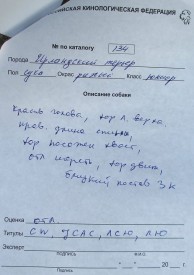 КИНОЛОГИЧЕСКАЯ ФЕДЕРАЦИЯ
№ по каталогу 134
Порода Ирландский терьер
Пол сука Окрас рыжий Класс юниор
Описание собаки
голова, хор л. верха
прав. длина спины,
хор посажен хвост,
отл шерсть, хор движ,
близкий постав З К
Оценка отл.
Титулы CW, JCAC, ЛСЮ, ЛЮ
Эксперт
ПОДПИСЬ Ф.И.О.
М.П.
" " 20 г.
Подпись